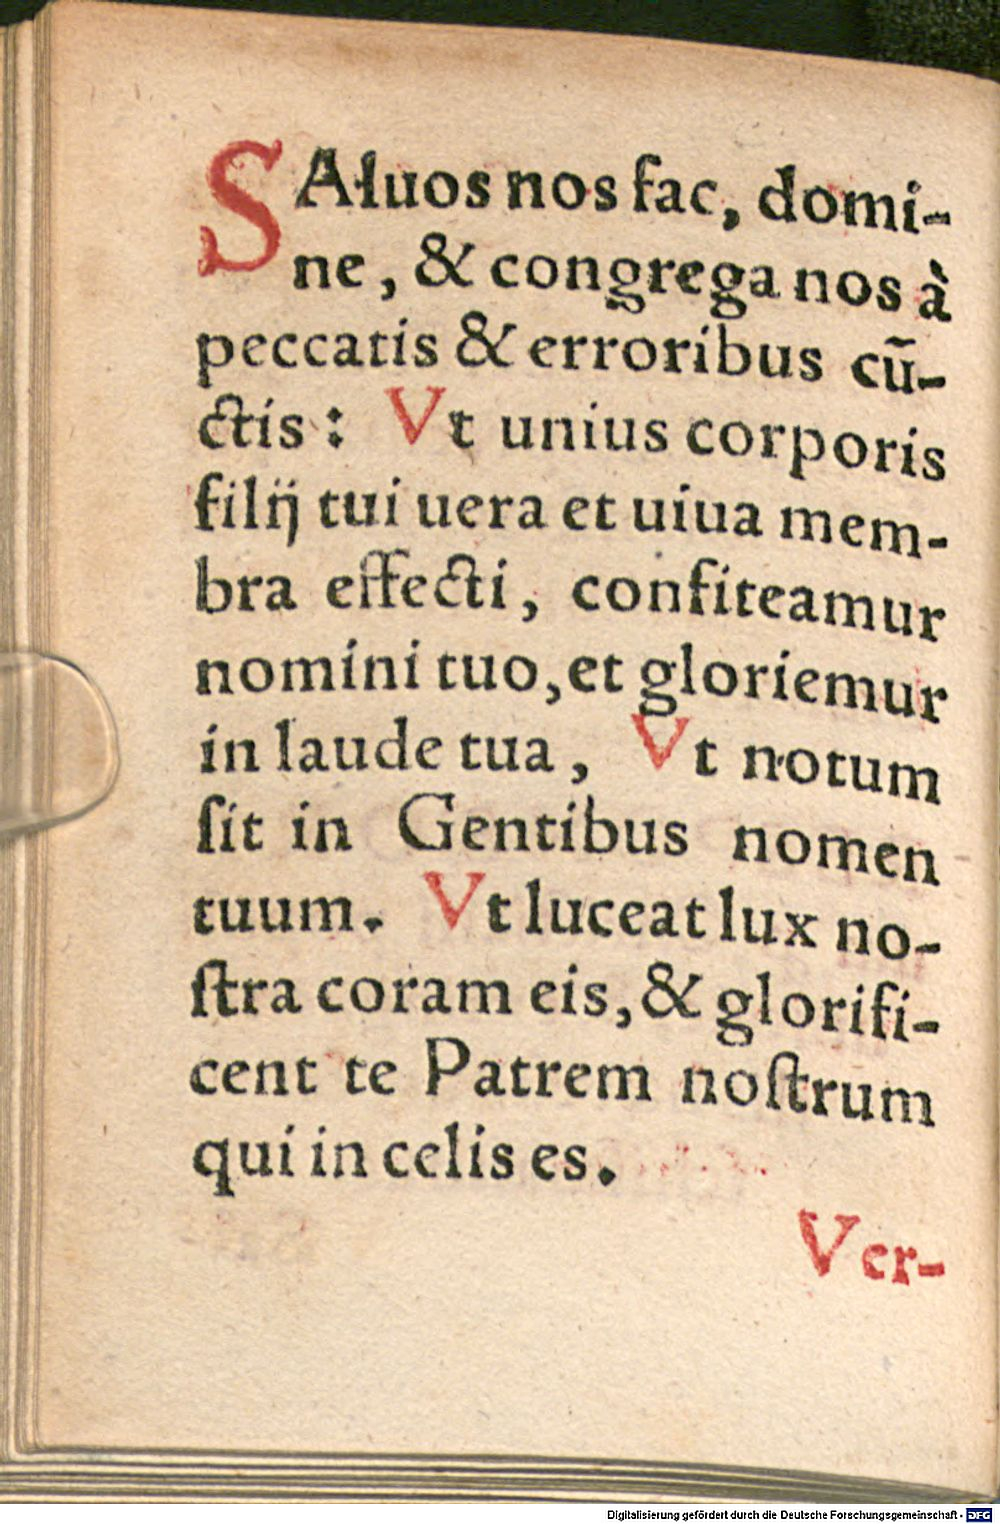 SAluos nos fac, domi-
ne, & congrega nos à
peccatis & erroribus cū-
ctis: Vt unius corporis
filij tui uera et uiua mem-
bra effecti, confiteamur
nomini tuo, et gloriemur
in laude tua, Vt notum
ſit in Gentibus nomen
tuum. Vt luceat lux no-
ſtra coram eis, & glorifi-
cent te Patrem noſtrum
qui in celis es.
Ver-
Digitalisierung gefördert durch die Deutsche Forschungsgemeinschaft - DFG